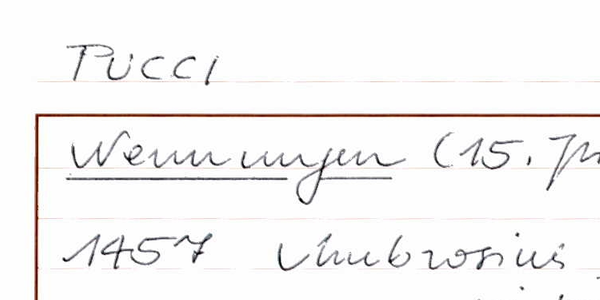 PUCCI
Nennungen (15. Jh
1457 Ambrosius